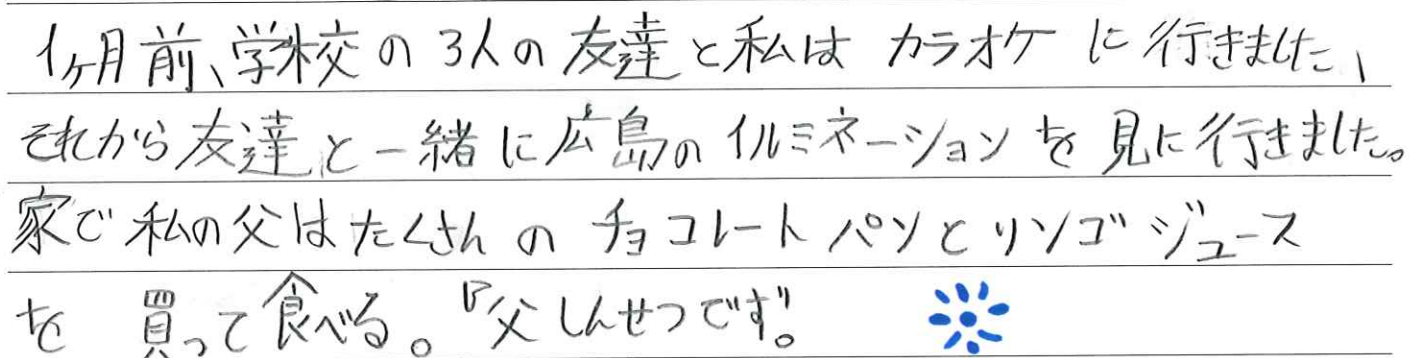 1ヶ月前、学校の3人の友達と私はカラオケに行きました、
それから友達と一緒に広島のイルミネーションを見に行きました。
家で私の父はたくさんのチョコレートパンとリンゴジュース
を買って食べる。『父しんせつです』。